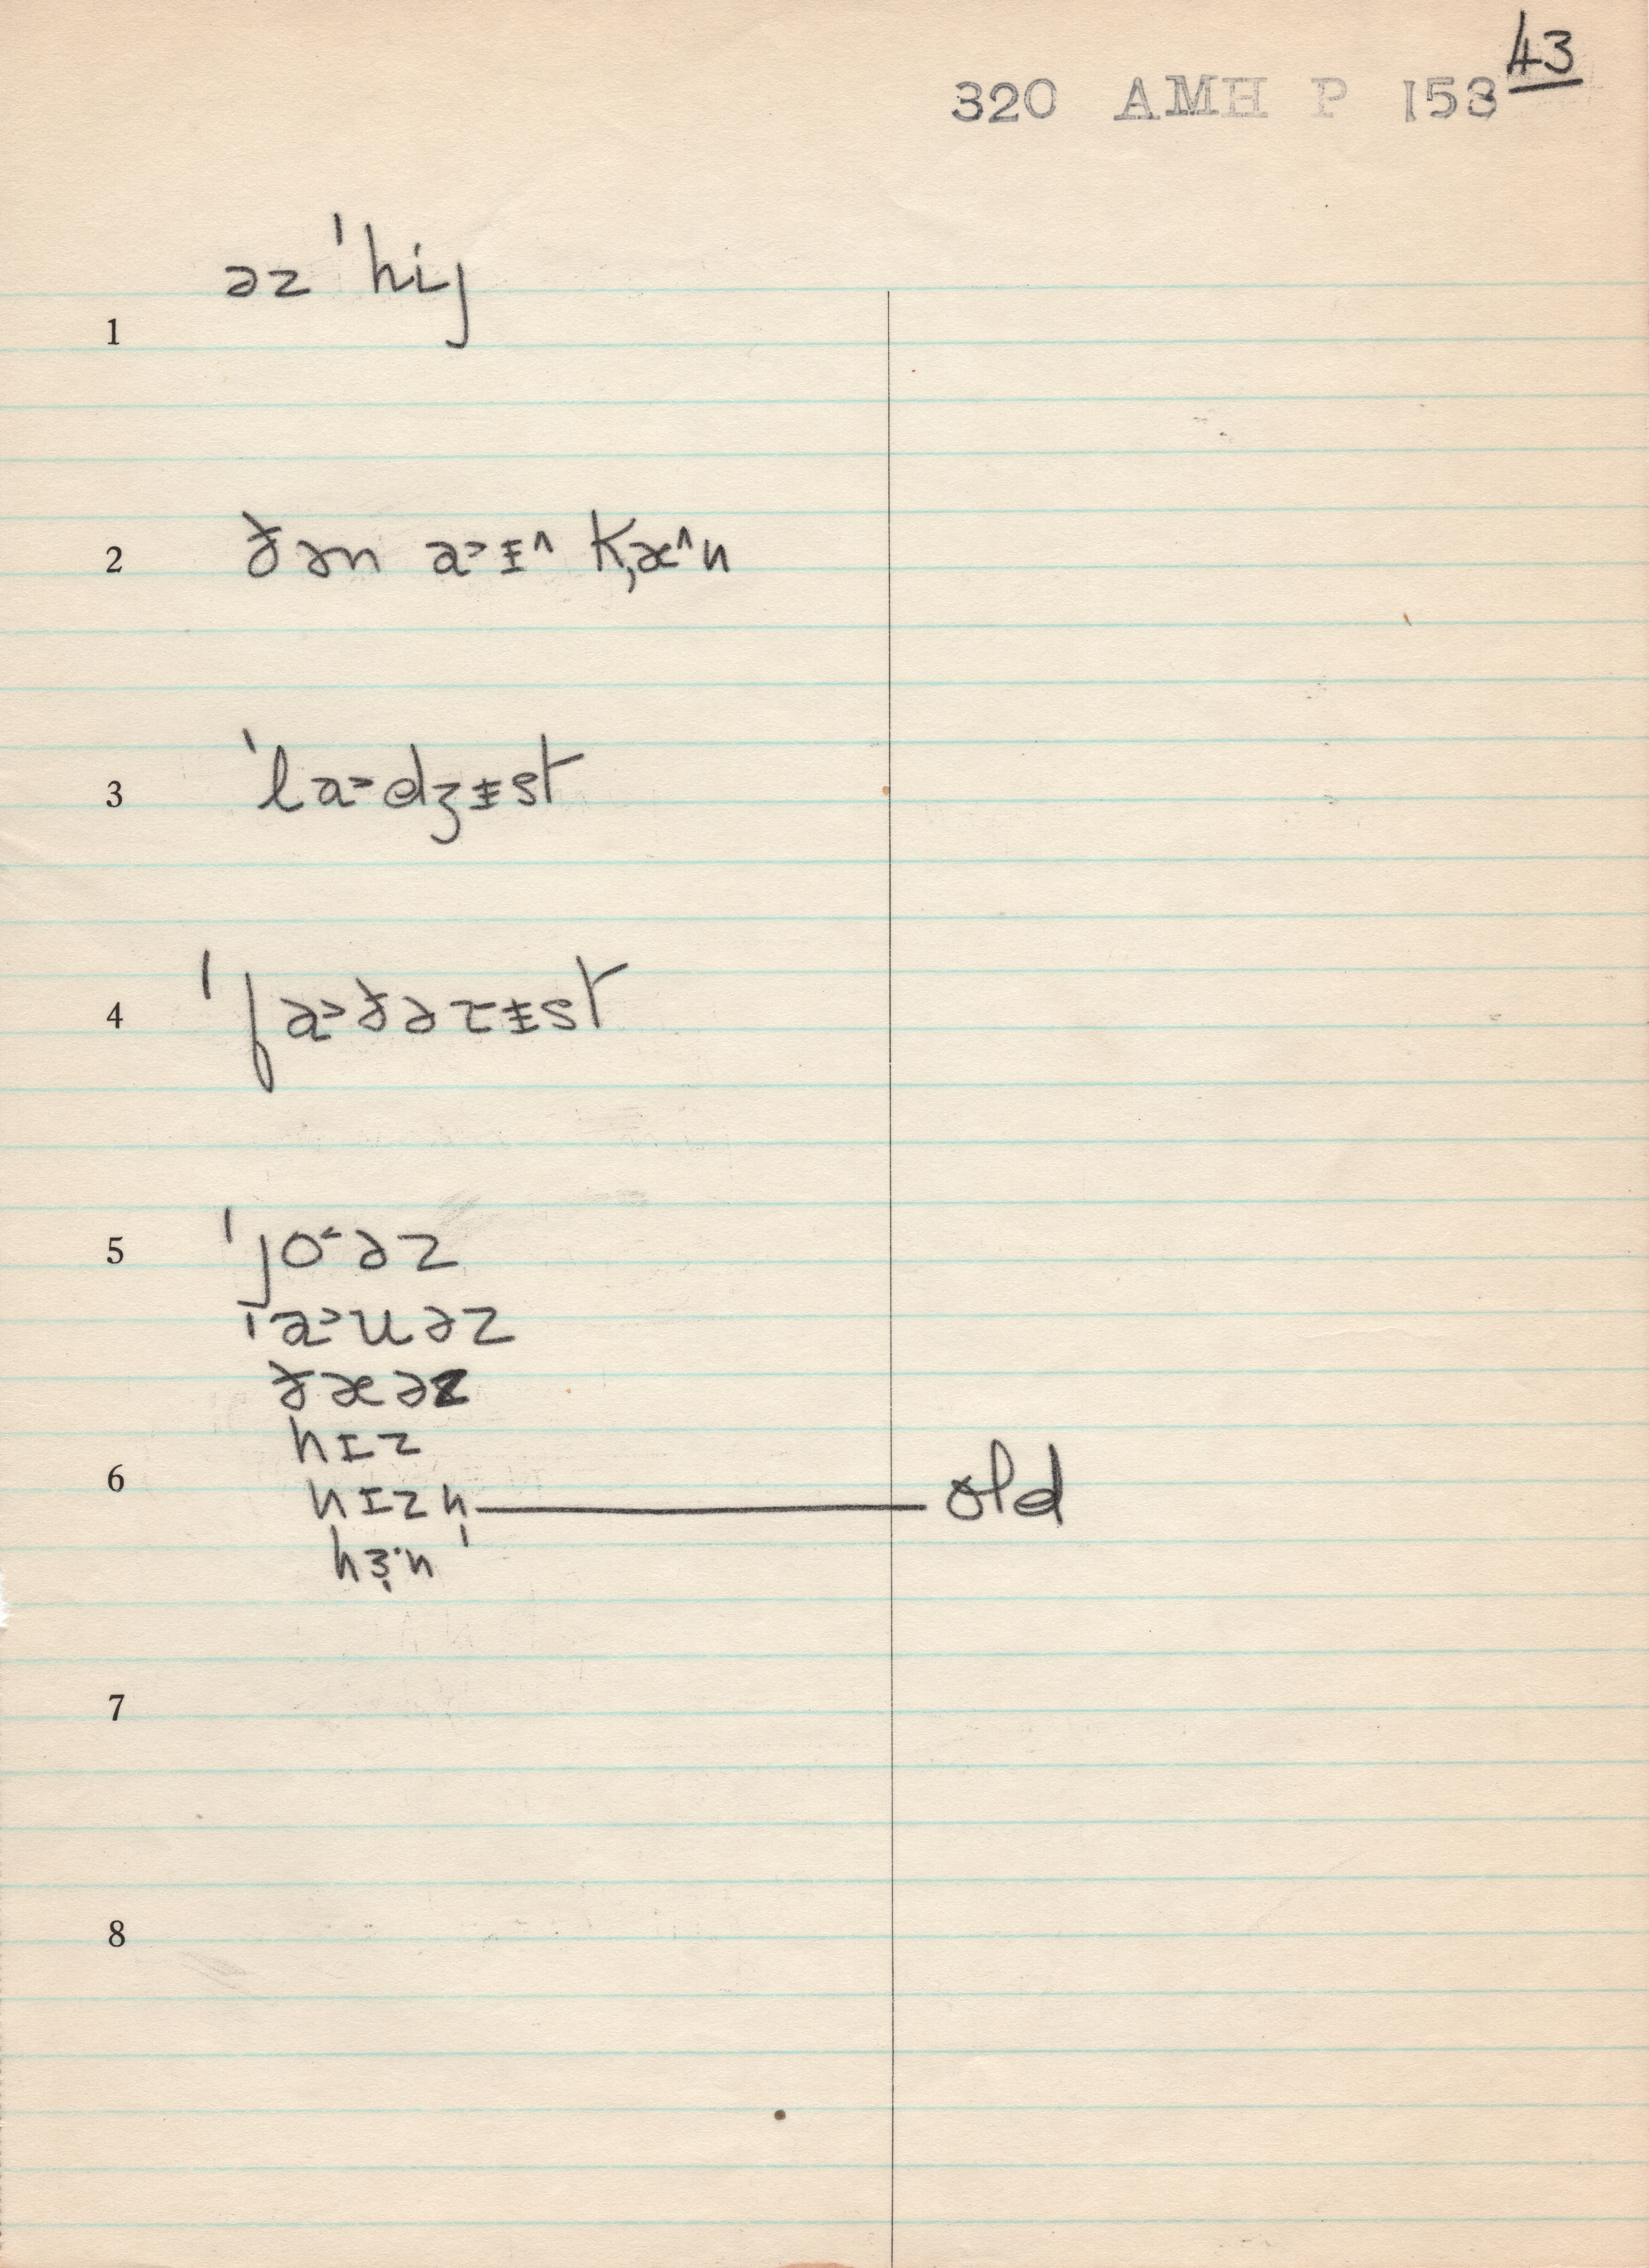 43
320 AMH P 153
1 əz ˈhij
2 ðən a˃ɪ̵^ k̹æ^n
3 ˈla˃dʒɪ̵st
4 ˈfa˃ðəɾɪ̵st
5 ˈjo˂əz
ˈa˃uəz
ðæəz
hɪz
6 hɪzn̩ — old
hɜ˞·n
7
8